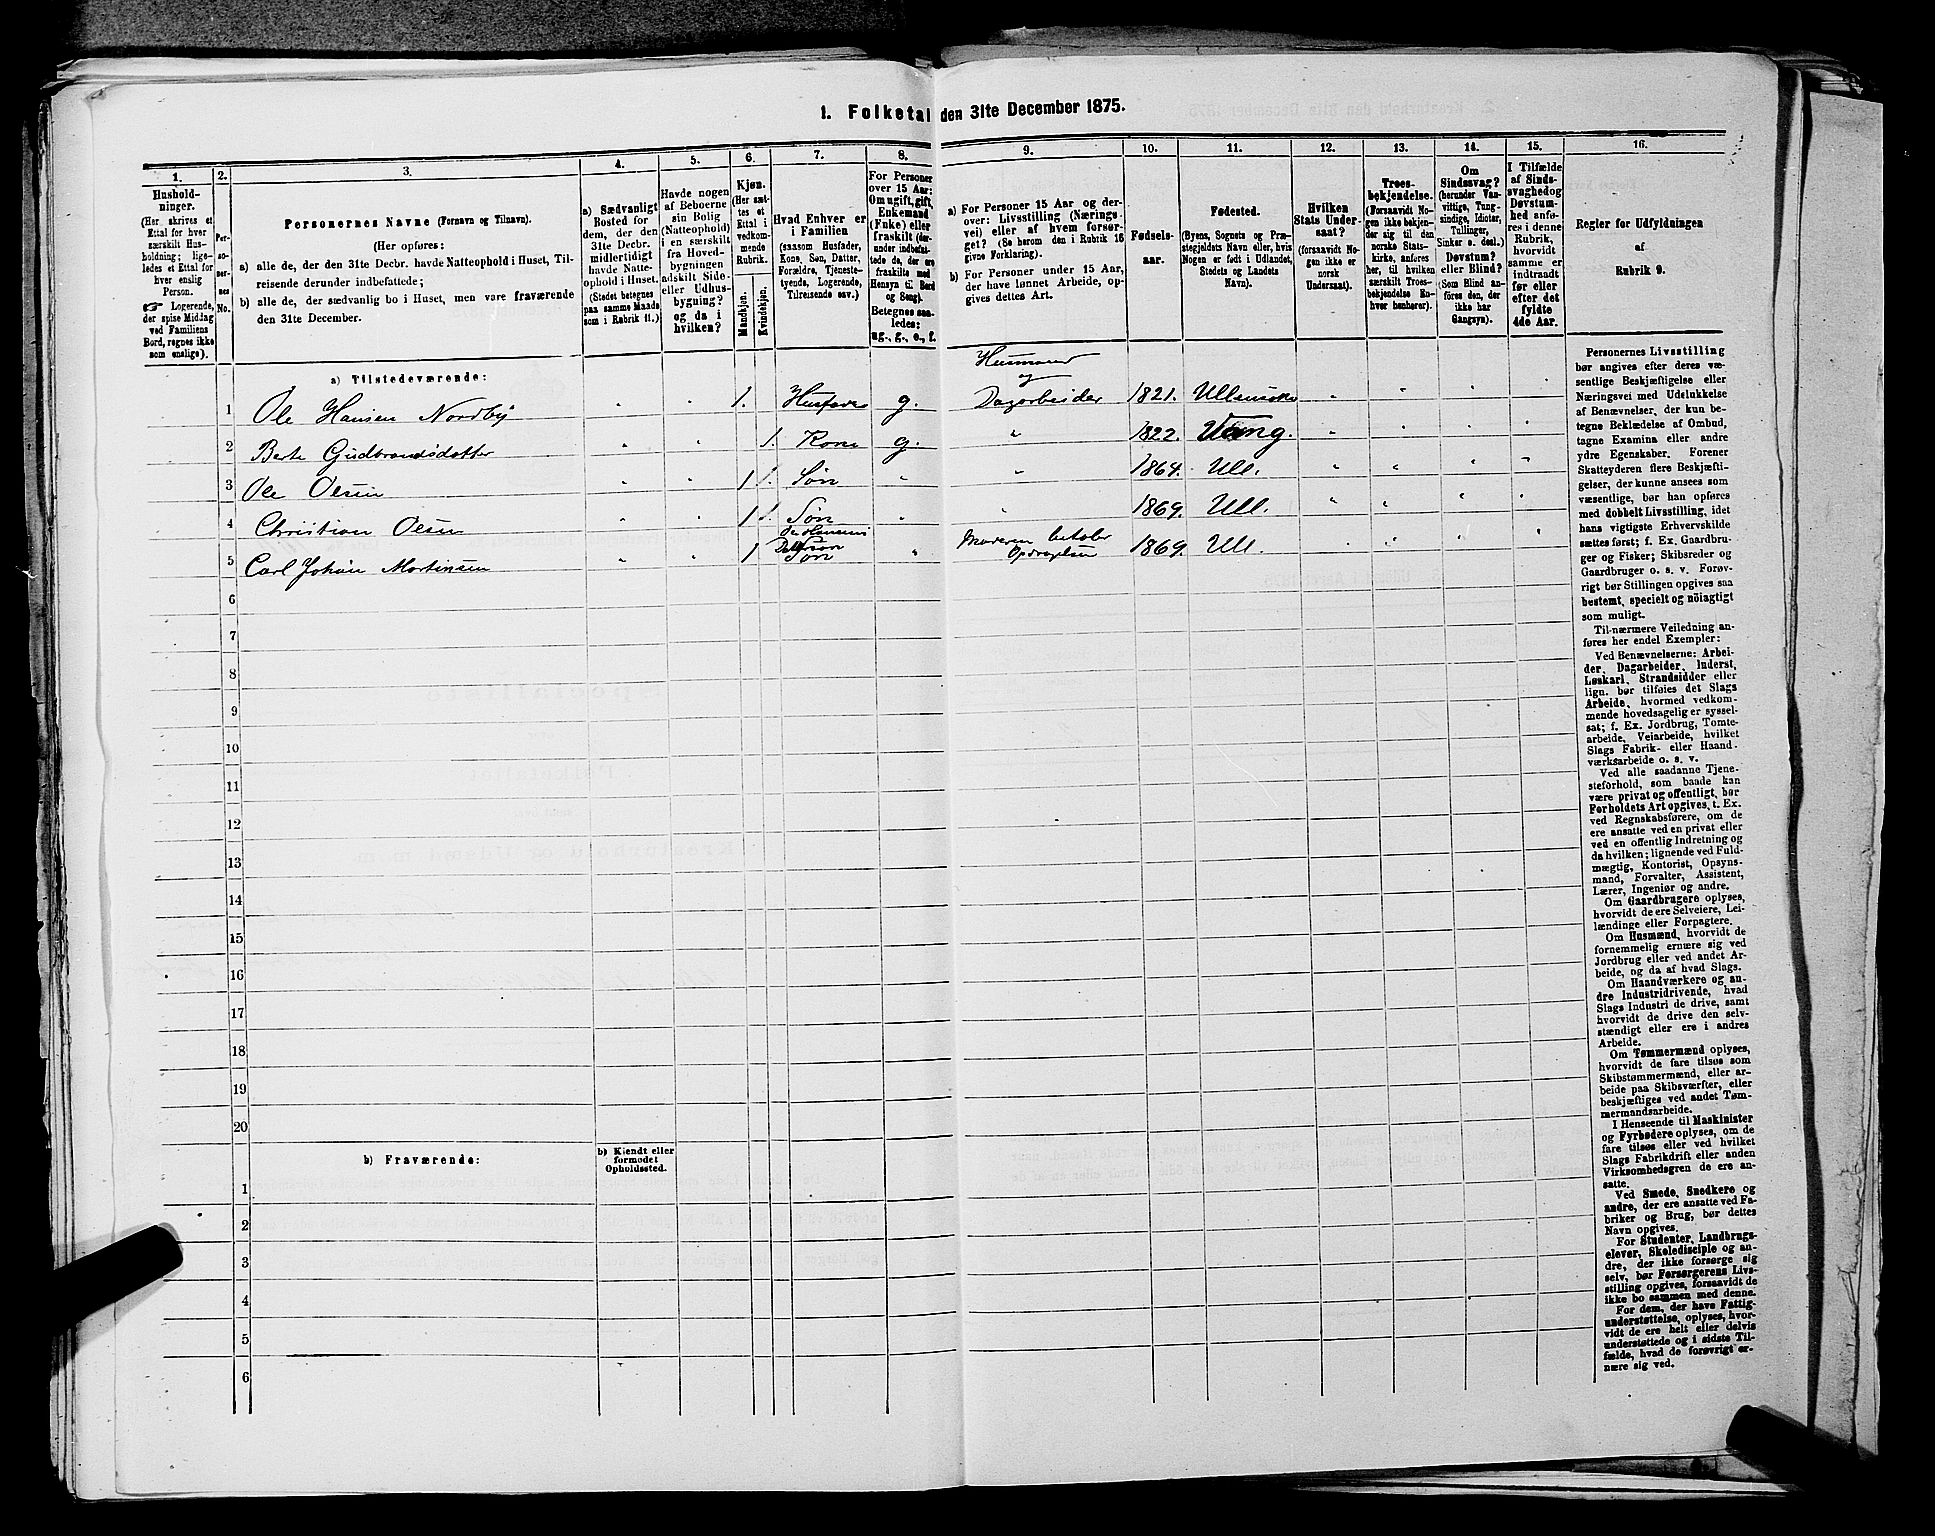 1. Folketal den 31te December 1875.
1. 2. 3. 4. 5. 6. 7. 8. 9. 10. 11. 12. 13. 14. 15. 16.
Hushold-
ninger.
(Her skrives et
Ettal for hver
særskilt Hus-
holdning; lige-
ledes et Ettal for
hver enslig
Person.
☞ Logerende,
der spise Middag
ved Familiens
Bord, regnes ikke
som enslige).
Per-
so-
ner-
nes
No.
Personernes Navne (Fornavn og Tilnavn).
(Her opføres:
a) alle de, der den 31te Decbr. havde Natteophold i Huset, Til-
reisende derunder indbefattede;
b) alle de, der sædvanlig bo i Huset, men vare fraværende
den 31te December.
a) Sædvanligt
Bosted for
dem, der den
31te Decbr.
midlertidigt
havde Natte-
ophold i Huset.
(Stedet betegnes
paa samme Maade
som i Rubrik 11.)
Havde nogen
af Beboerne
sin Bolig
(Natteophold)
i en særskilt
fra Hoved-
bygningen
adskilt Side-
eller Udhus-
bygning?
og da i
hvilken?
Kjøn.
(Her sæt-
tes et
Ettal i
vedkom-
mende
Rubrik.
Mandkjøn.
Kvindekjøn.
Hvad Enhver er
i Familien
(saasom Husfader,
Kone, Søn, Datter,
Forældre, Tjeneste-
tyende, Logerende,
Tilreisende osv.)
For Personer
over 15 Aar:
Om ugift, gift,
Enkemand
(Enke) eller
fraskilt (der-
under indbefat-
tede de, der ere
fraskilte med
Hensyn til Bord
og Seng).
Betegnes saa-
ledes:
ug., g., e., f.
a) For Personer 15 Aar og der-
over: Livsstilling (Nærings-
vei) eller af hvem forsør-
get? (Se herom den i Rubrik 16
givne Forklaring).
b) For Personer under 15 Aar,
der have lønnet Arbeide, op-
gives dettes Art.
Fødsels-
aar.
Fødested.
(Byens, Sognets og Præ-
stegjeldets Navn eller, hvis
Nogen er født i Udlandet,
Stedets og Landets
Navn).
Hvilken
Stats Under-
saat?
(forsaavidt No-
gen ikke er
norsk
Undersaat).
Troes-
bekjendelse.
(Forsaavidt No-
gen ikke bekjen-
der sig til den
norske Stats-
kirke, anføres
her, til hvilken
særskilt Troes-
bekjendelse En-
hver henhører).
Om
Sindssvag?
(herunder Van-
vittige, Tung-
sindige, Idioter,
Tullinger,
Sinker o. desl.)
Døvstum?
eller Blind?
(Som Blind an-
føres den, der
ikke har
Gangsyn).
I Tilfælde
af Sinds-
svaghed og
Døvstum-
hed anfø-
res i denne
Rubrik,
hvorvidt
samme er
indtraadt
før eller
efter det
fyldte
4de Aar.
Regler for Udfyldningen
af
Rubrik 9.
a) Tilstedeværende:
1 Ole Hansen Nordby " " 1. Husfader g. Husmand og Dagarbeider 1821. Ullensaker " " " "
2 Berte Gudbrandsdatter " " 1. Kone g. " 1822. Vang. " " " "
3 Ole Olsen " " 1 Søn " " 1864. Ull. " " " "
4 Christian Olsen " " 1 Søn " " 1869. Ull. " " " "
5 Carl Johan Mortinsen " " 1 Søn " Moderen betaler 1869. Ull " " " "
6
7
8
9
10
11
12
13
14
15
16
17
18
19
20
b) Fraværende:
b) Kjendt eller
formodet
Opholdssted.
1
2
3
4
5
6
Personernes Livsstilling
bør angives efter deres væ-
sentlige Beskjæftigelse eller
Næringsvei med Udelukkelse
af Benævnelser, der kun be-
tegne Beklædelse af Ombud,
tagne Examina eller andre
ydre Egenskaber. Forener
Skatteyderen flere Beskjæfti-
gelser, der kunne ansees som
væsentlige, bør han opføres
med dobbelt Livsstilling, idet
hans vigtigste Erhvervskilde
sættes først; f. Ex. Gaardbru-
ger og Fisker; Skibsreder og
Gaardbruger o. s. v. Forøv-
rigt bør Stillingen opgives saa
bestemt, specielt og nöiagtigt
som muligt.
Til nærmere Veiledning an-
føres her endel Exempler:
Ved Benævnelserne: Arbei-
der, Dagarbeider, Inderst,
Løskarl, Strandsidder eller
lign. bør tilføies det Slags
Arbeide, hvormed vedkom-
mende hovedsagelig er syssel-
sat; f. Ex. Jordbrug, Tomte-
arbeide, Veiarbeide, hvilket
Slags Fabrik- eller Haand-
værksarbeide o. s. v.
Ved alle saadanne Tjene-
steforhold, som baade kan
være privat og offentligt, bør
Forholdets Art opgives, t. Ex.
ved Regnskabsførere, om de
ere ansatte ved en privat eller
ved en offentlig Indretning og
da hvilken; lignende ved Fuld-
mægtig, Kontorist, Opsyns-
mand, Forvalter, Assistent,
Lærer, Ingeniør og andre.
Om Gaardbrugere oplyses,
hvorvidt de ere Selveiere, Lei-
lændinge eller Forpagtere.
Om Husmænd, hvorvidt de
fornemmelig ernære sig ved
Jordbrug eller ved andet Ar-
beide, og da af hvad Slags.
Om Haandværkere og an-
dre Industridrivende, hvad
Slags Industri de drive, samt
hvorvidt de drive den selv-
stændigt eller ere i andres
Arbeide.
Om Tømmermænd oplyses,
hvorvidt de fare tilsøs som
Skibstømmermænd, eller ar-
beide paa Skibsværfter, eller
beskjæftiges ved andet Tøm-
mermandsarbeide.
I Henseende til Maskinister
og Fyrbødere oplyses, om de
fare tilsøs eller ved hvilket
Slags Fabrikdrift eller anden
Virksomhedsgren de ere an-
satte.
Ved Smede, Snedkere og
andre, der ere ansatte ved Fa-
briker og Brug, bør dettes
Navn opgives.
For Studenter, Landbrugs-
elever, Skoledisciple og an-
dre, der ikke forsørge sig
selv, bør Forsørgerens Livs-
stilling opgives, forsaavidt de
ikke bo sammen med denne.
For dem, der have Fattig-
understøttelse, oplyses, hvor-
vidt de ere helt eller delvis
understøttede og i sidste Til-
fælde, hvad de forøvrigt er-
nære sig ved.